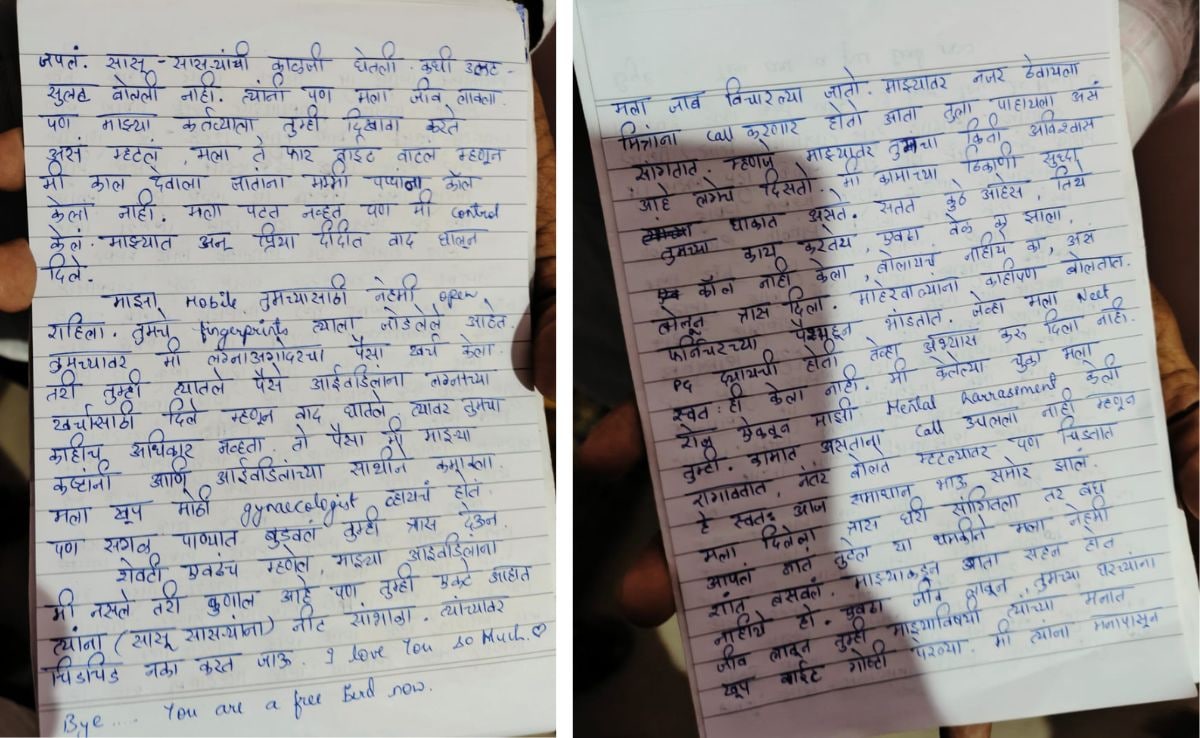 जपलं. सासू-सासऱ्यांची काळजी घेतली. कधी उलट-
सुलट बोलली नाही. त्यांनी पण मला जीव लावला.
पण माझ्या कर्तव्याला तुम्ही दिखावा करते
असं म्हटलं, मला ते फार वाईट वाटलं म्हणून
मी काल देवाला जातांना मम्मी पप्पांना कॉल
केला नाही. मला पटत नव्हतं पण मी control
केलं. माझ्यात अन् प्रिया दीदीत वाद घालून
दिले.
माझा Mobile तुमच्यासाठी नेहमी open
राहिला. तुमचे fingerprints त्याला जोडलेले आहेत.
तुमच्यावर मी लग्नाअगोदरचा पैसा खर्च केला.
तरी तुम्ही त्यातले पैसे आईवडिलांना लग्नाच्या
खर्चासाठी दिले म्हणून वाद घातले. त्यावर तुमचा
काहीच अधिकार नव्हता. तो पैसा मी माझ्या
कष्टांनी आणि आईवडिलांच्या साथीने कमावला.
मला खूप मोठी gynaecologist व्हायचं होतं.
पण सगळं पाण्यात बुडवलं तुम्ही त्रास देऊन.
शेवटी एवढंच म्हणेल, माझ्या आईवडिलांना
मी नसले तरी कुणाल आहे पण तुम्ही एकटे आहात
त्यांना (सासू सासऱ्यांना) नीट सांभाळा. त्यांच्यावर
चिडचिड नका करत जाऊ. I love You so Much. ♡
Bye..... You are a free Bird now.
मला जाब विचारल्या जातो. माझ्यावर नजर ठेवायला
मित्रांना call करणार होतो आता तुला पाहायला असं
सांगतात. म्हणजे माझ्यावर तुमचा किती अविश्वास
आहे लगेच दिसतो. मी कामाच्या ठिकाणी सुद्धा
तुमच्या धाकात असते. सतत कुठे आहेस, तिथे
काय करतेय, एवढा वेळ का झाला.
कॉल नाही केला, बोलायचं नाहीय का, असं
बोलून त्रास दिला. माहेरच्यांना काहीपण बोलतात.
फर्निचरच्या पैशाहून भांडतात. जेव्हा मला Neet
PG द्यायची होती तेव्हा अभ्यास करू दिला नाही.
स्वतः ही केला नाही. मी केलेल्या चुका मला
रोज ऐकवून माझी Mental harrasment केली
तुम्ही. कामात असतांना call उचलला नाही म्हणून
रागावतात, नंतर बोलते म्हटल्यावर पण चिडतात
हे स्वतः आज समाधान भाऊ समोर झालं.
मला दिलेला त्रास घरी सांगितला तर बघ
आपलं नातं तुटेल या धमकीने मला नेहमी
शांत बसवलं. माझ्याकडून आता सहन होत
नाहीये हो. एवढा जीव लावून, तुमच्या घरच्यांना
जीव लावून तुम्ही माझ्याविषयी त्यांच्या मनात
खूप वाईट गोष्टी पेरल्या. मी त्यांना मनापासून